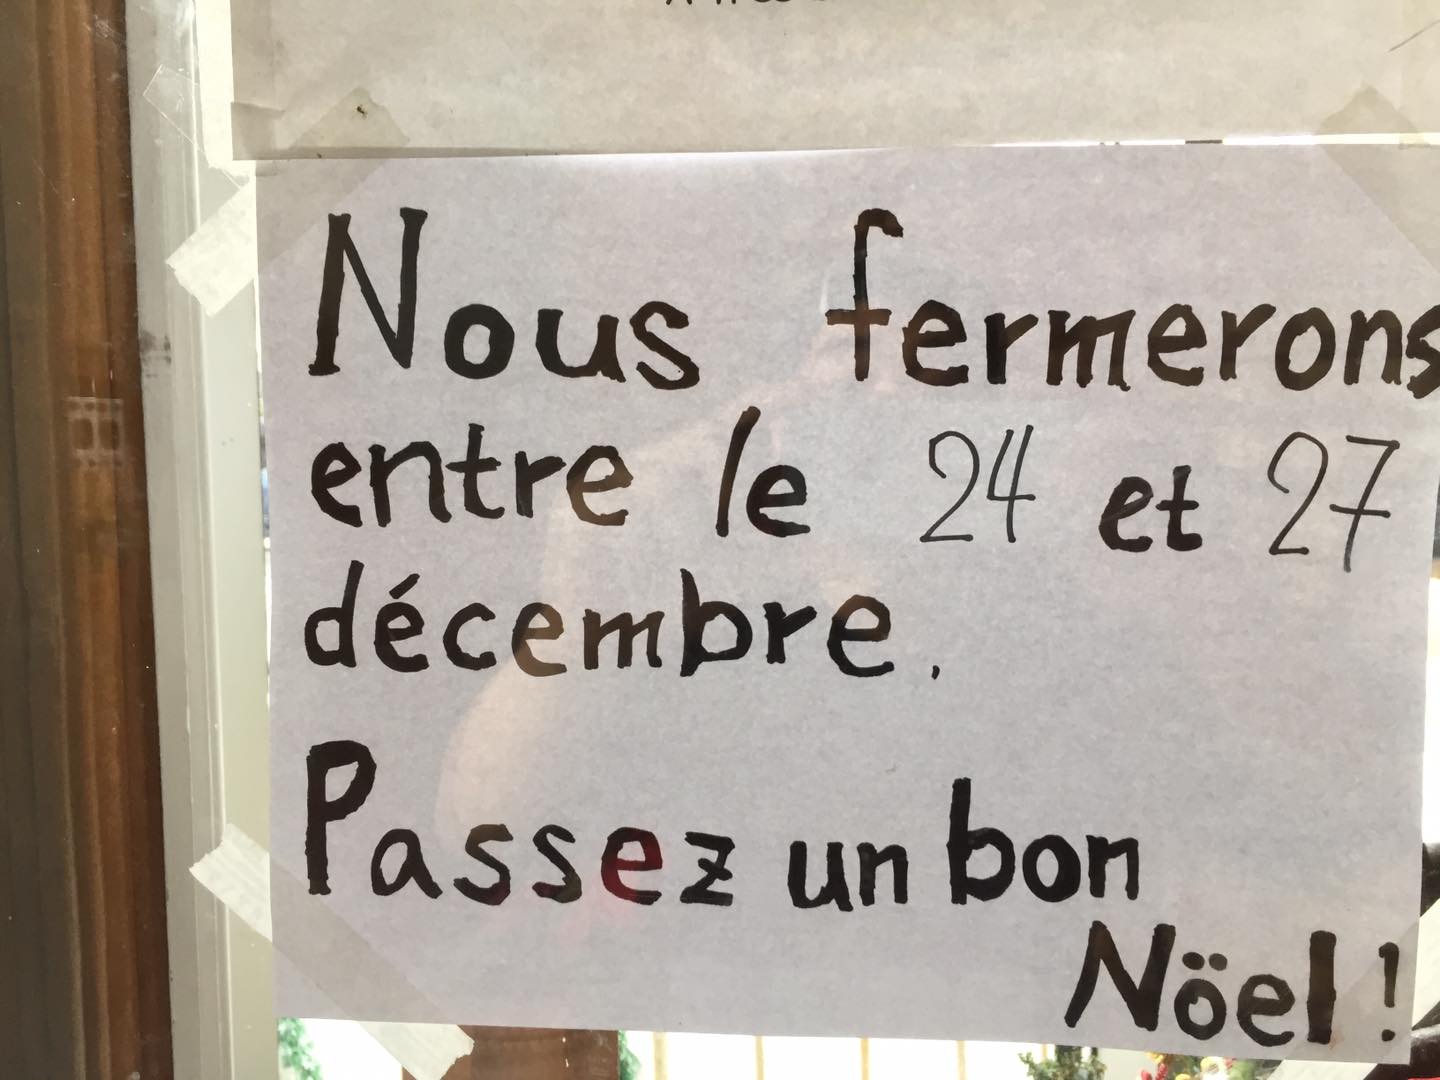 Nous fermerons
entre le 24 et 27
décembre.
Passez un bon
Nöel !